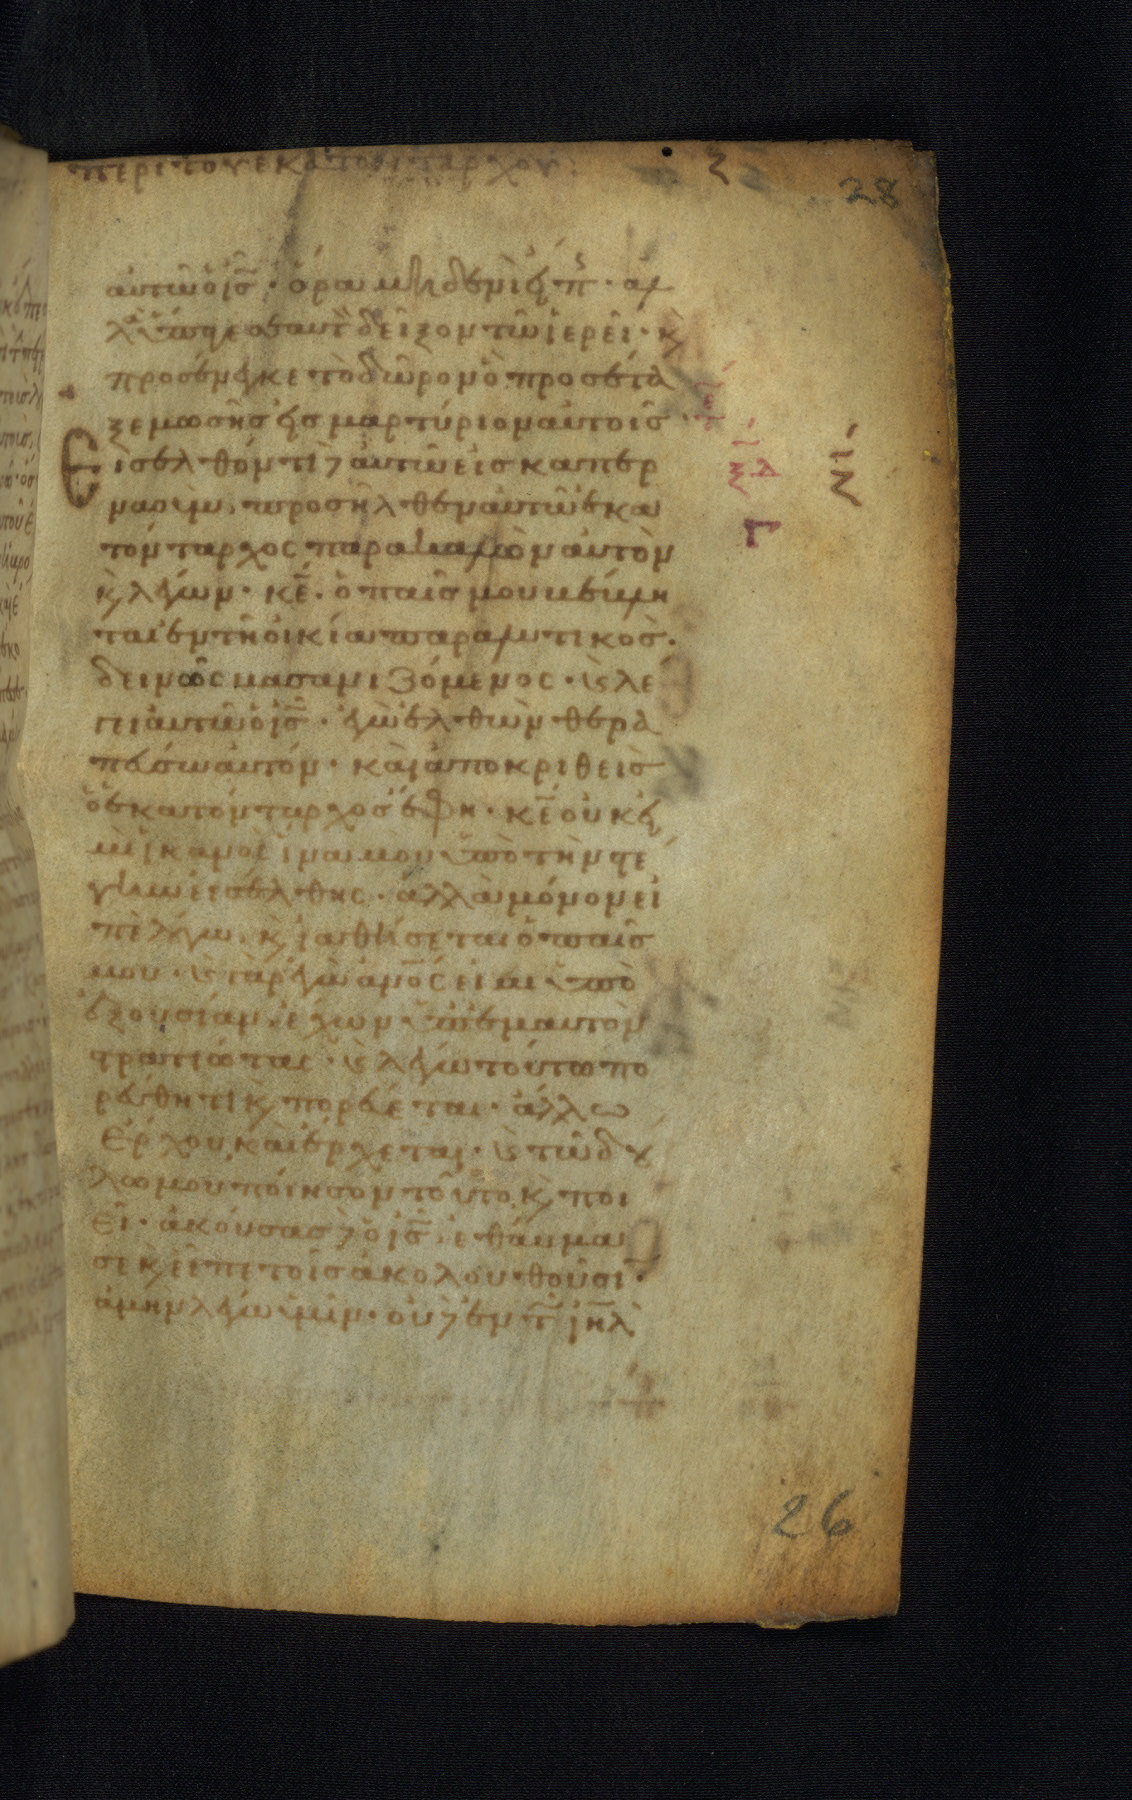 περι του εκατονταρχου: ζ
28
αυτῶ ὁ ις̅· ὅρα μηδενὶ εἴπης· ἀλ
λ' ὕπαγε σεαυτὸν δεῖξον τῶ ἱερεῖ· κ
προσένεγκε τὸ δῶρον ὃ προσέτα
ξε μωσῆς εἰς μαρτύριον αὐτοῖς·
Εἰσελθόντι δὲ αὐτῶ εἰς καπερ
ναούμ, προσῆλθεν αὐτῶ ἑκα
τόνταρχος παρακαλῶν αὐτὸν
κ λέγων· κε̅· ὁ παῖς μου βέβλη
ται ἐν τῆ οἰκία παραλυτικὸς·
δεινῶς βασανιζόμενος· κ λέ
γει αὐτῶ ὁ ις̅· ἐγὼ ἐλθὼν θερα
πεύσω αὐτόν· καὶ ἀποκριθεὶς
ὁ ἑκατόνταρχος ἔφη· κε̅ οὐκ εἰ
μὶ ἱκανὸς ἵνα μου ὑπὸ τὴν στέ
γην εἰσέλθης· ἀλλὰ μόνον εἰ
πὲ λόγω, κ ἰαθήσεται ὁ παῖς
μου· κ γὰρ ἐγὼ ἄνος εἰμι ὑπὸ
ἐξουσίαν, ἔχων ὑπ' ἐμαυτὸν
στρατιώτας· κ λέγω τούτω πο
ρεύθητι κ πορεύεται· ἄλλω
Ἔρχου, καὶ ἔρχεται· κ τῶ δού
λω μου ποίησον τοῦτο, κ ποι
εῖ· ἀκούσας δὲ ὁ ις̅ ἐθαύμα
σε κ εἶπε τοῖς ἀκολουθοῦσι·
ἀμὴν λέγω ὑμῖν· οὐδὲ ἐν τῶ ιηλ̅
ξδ
Γ
26